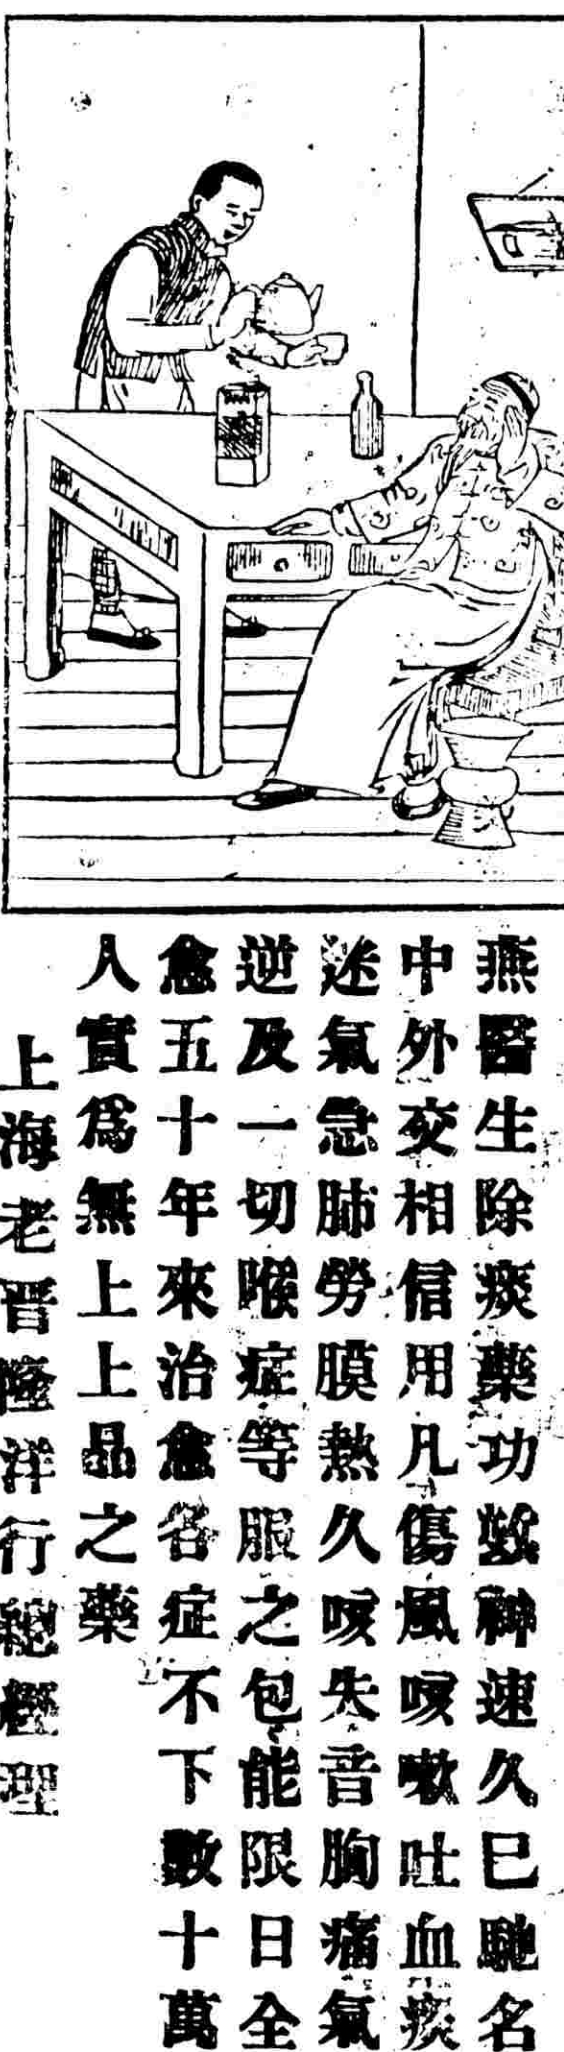 燕醫生除痰藥功效神速久已馳名
中外交相信用凡傷風咳嗽吐血痰
迷氣急肺勞膜熱久咳失音胸痛氣
逆及一切喉症等服之包能限日全
愈五十年來治愈各症不下數十萬
人實爲無上上品之藥
上海老晋隆洋行總經理